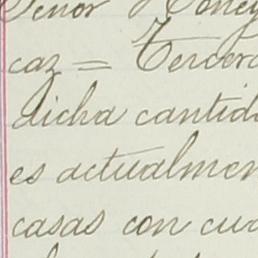 Señor Honey
caz = Tercero
dicha cantida
es actualmen
casas con cua